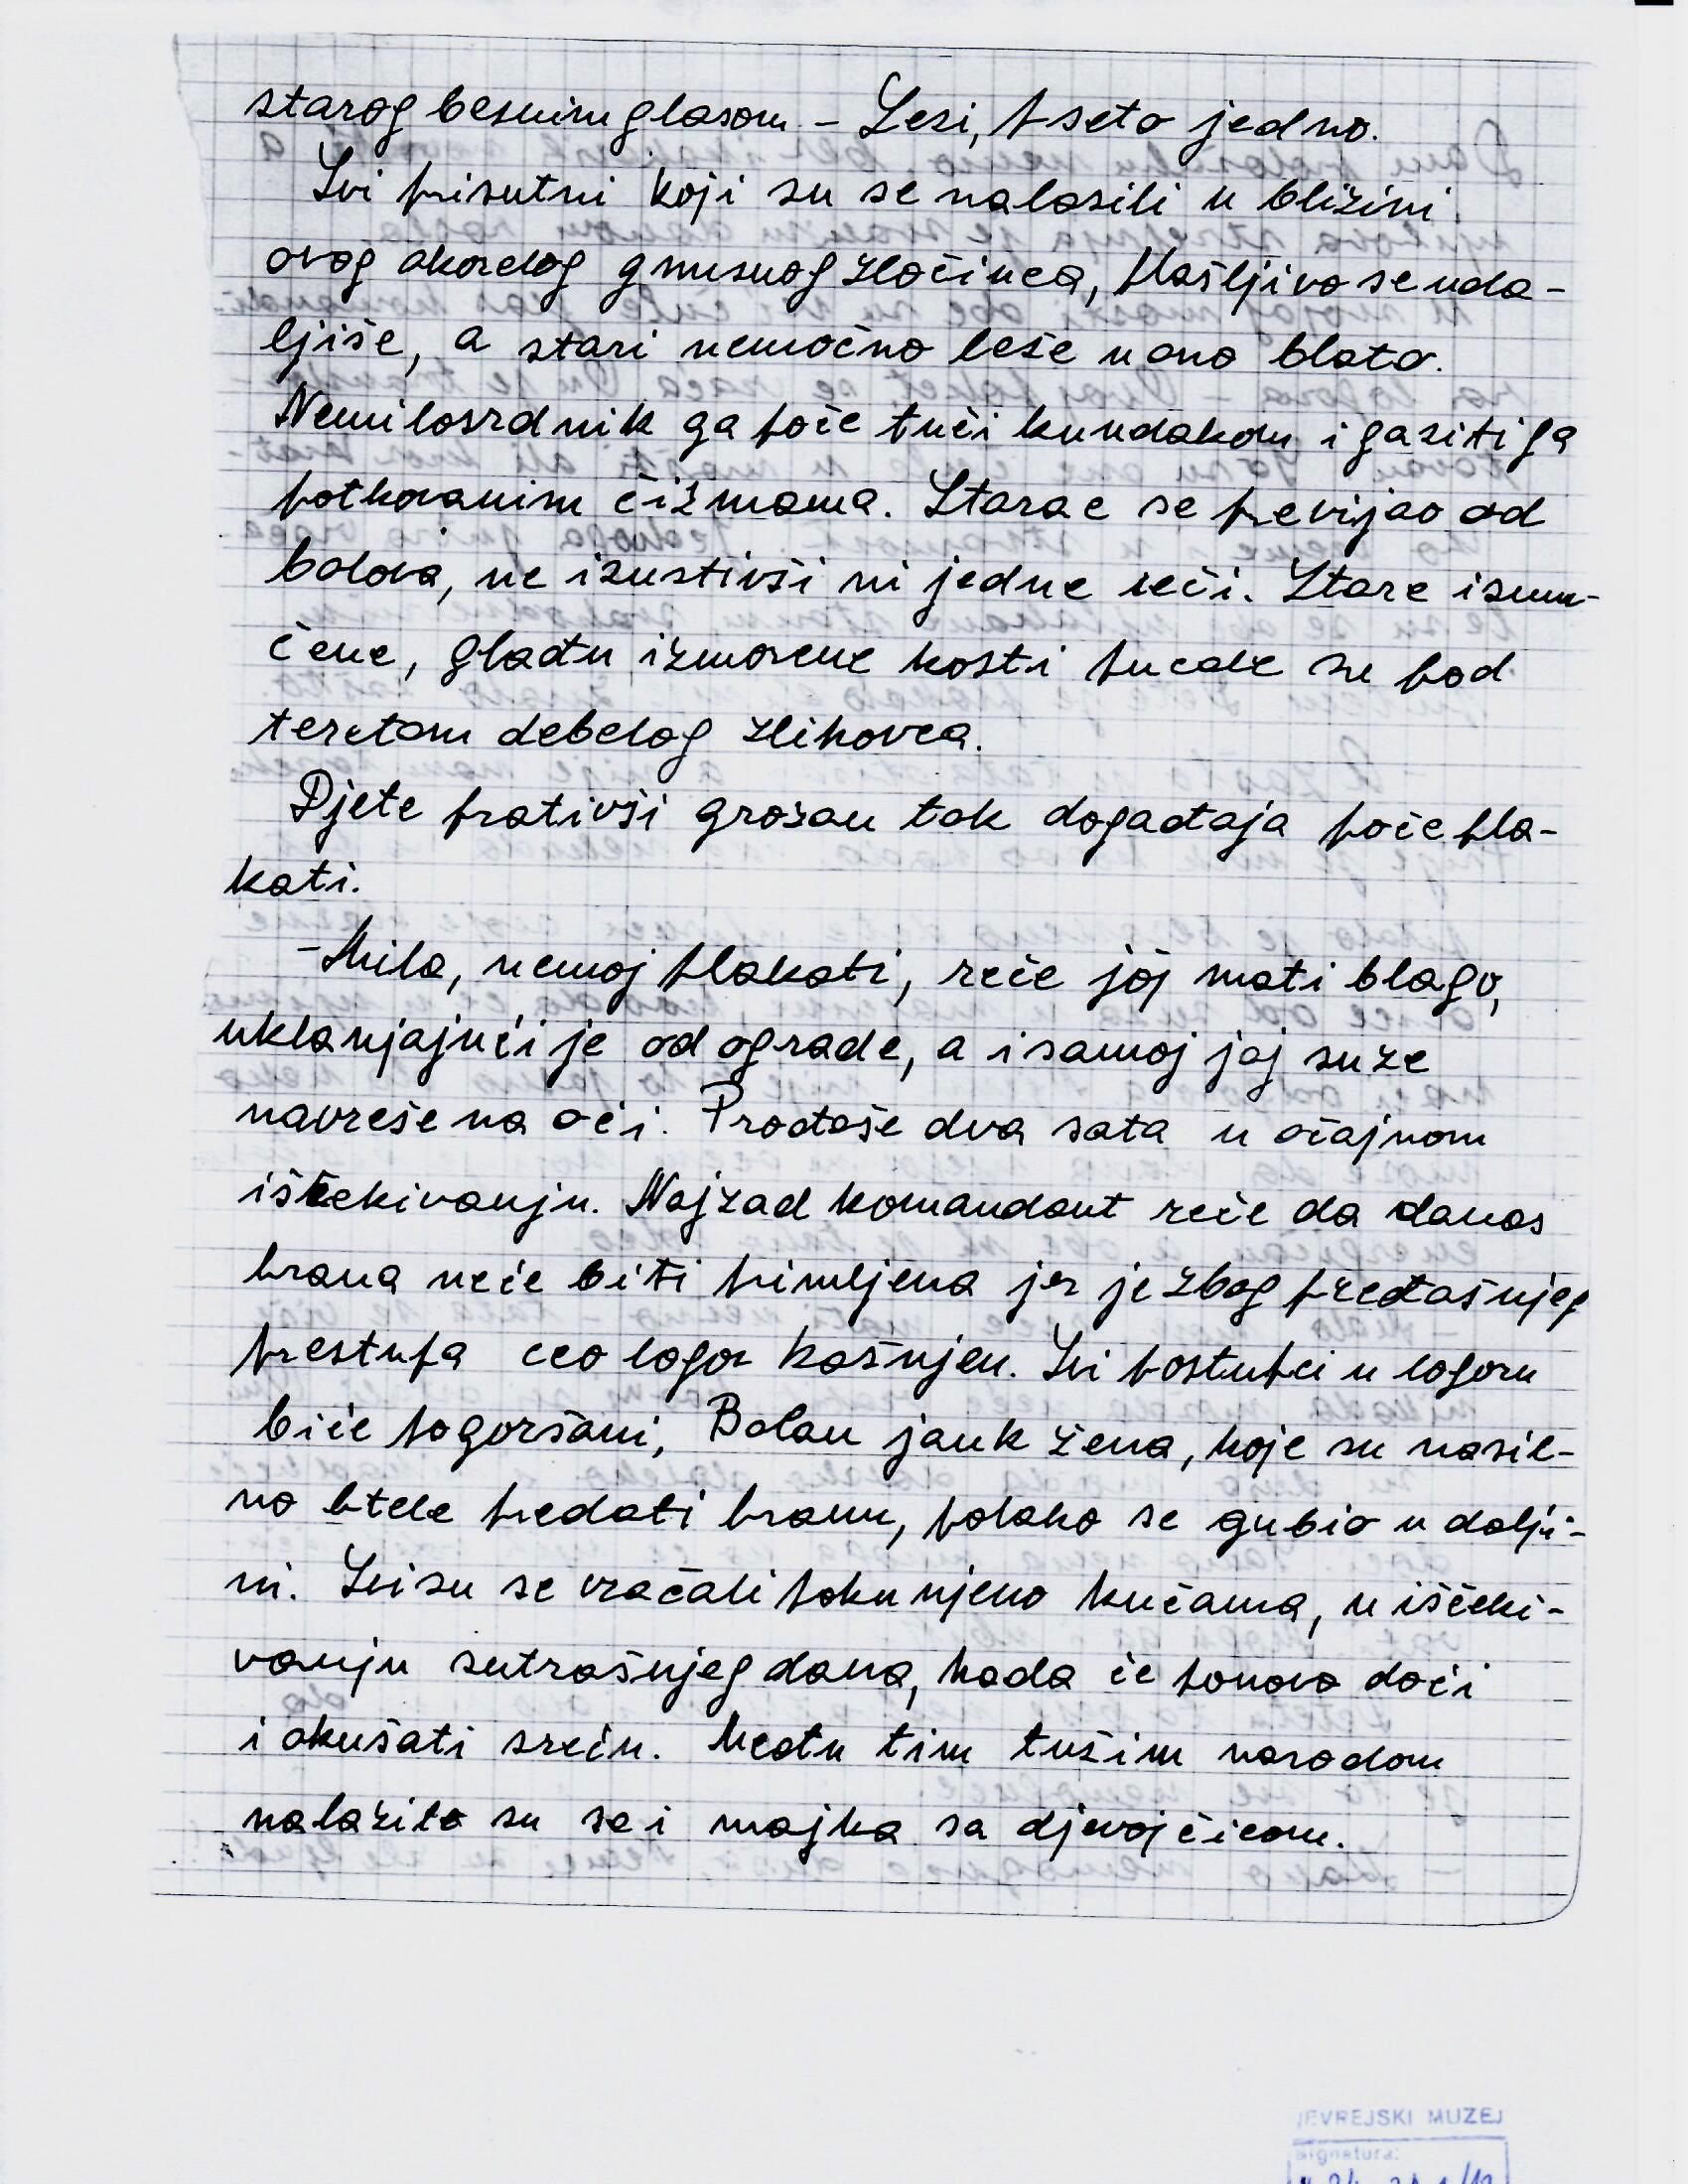 starog besnim glasom – Lezi, pseto jedno.
Svi prisutni koji su se nalazili u blizini
ovog okorelog gnusnog zločinca, plašljivo se uda-
ljiše, a stari nemoćno leže u ono blato.
Nemilosrdnik ga poče tući kundakom i gaziti ga
potkovanim čižmama. Starac se previjao od
bolova, ne izustivši ni jedne reči. Stare izmu-
čene, glađu izmorene kosti pucale su pod
teretom debelog zlikovca.
Djete prativši grozan tok događaja poče pla-
kati.
– Mila, nemoj plakati, reče joj mati blago,
uklanjajući je od ograde, a i samoj joj suze
navreše na oči. Prođoše dva sata u očajnom
iščekivanju. Najzad komandant reče da danas
hrana neće biti primljena jer je zbog pređašnjeg
prestupa ceo logor kažnjen. Svi postupci u logoru
biće pogoršani, Bolan jauk žena, koje su nasil-
no htele predati hranu, polako se gubio u dalji-
ni. Svi su se vraćali pokunjeno kućama, u iščeki-
vanju sutrašnjeg dana, kada će ponovo doći
i okušati sreću. Među tim tužim narodom
nalazile su se i majka sa djevojčicom.
JEVREJSKI MUZEJ
Signatura: